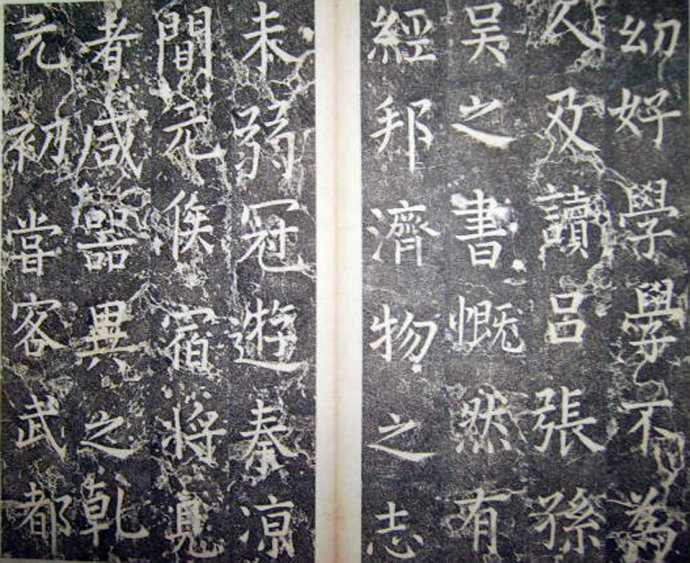 幼好學學不為
人及讀呂張孫
吳之書慨然有
經邦濟物之志
未弱冠遊秦涼
間元侯宿將見
者咸器異之乹
元初嘗客武都